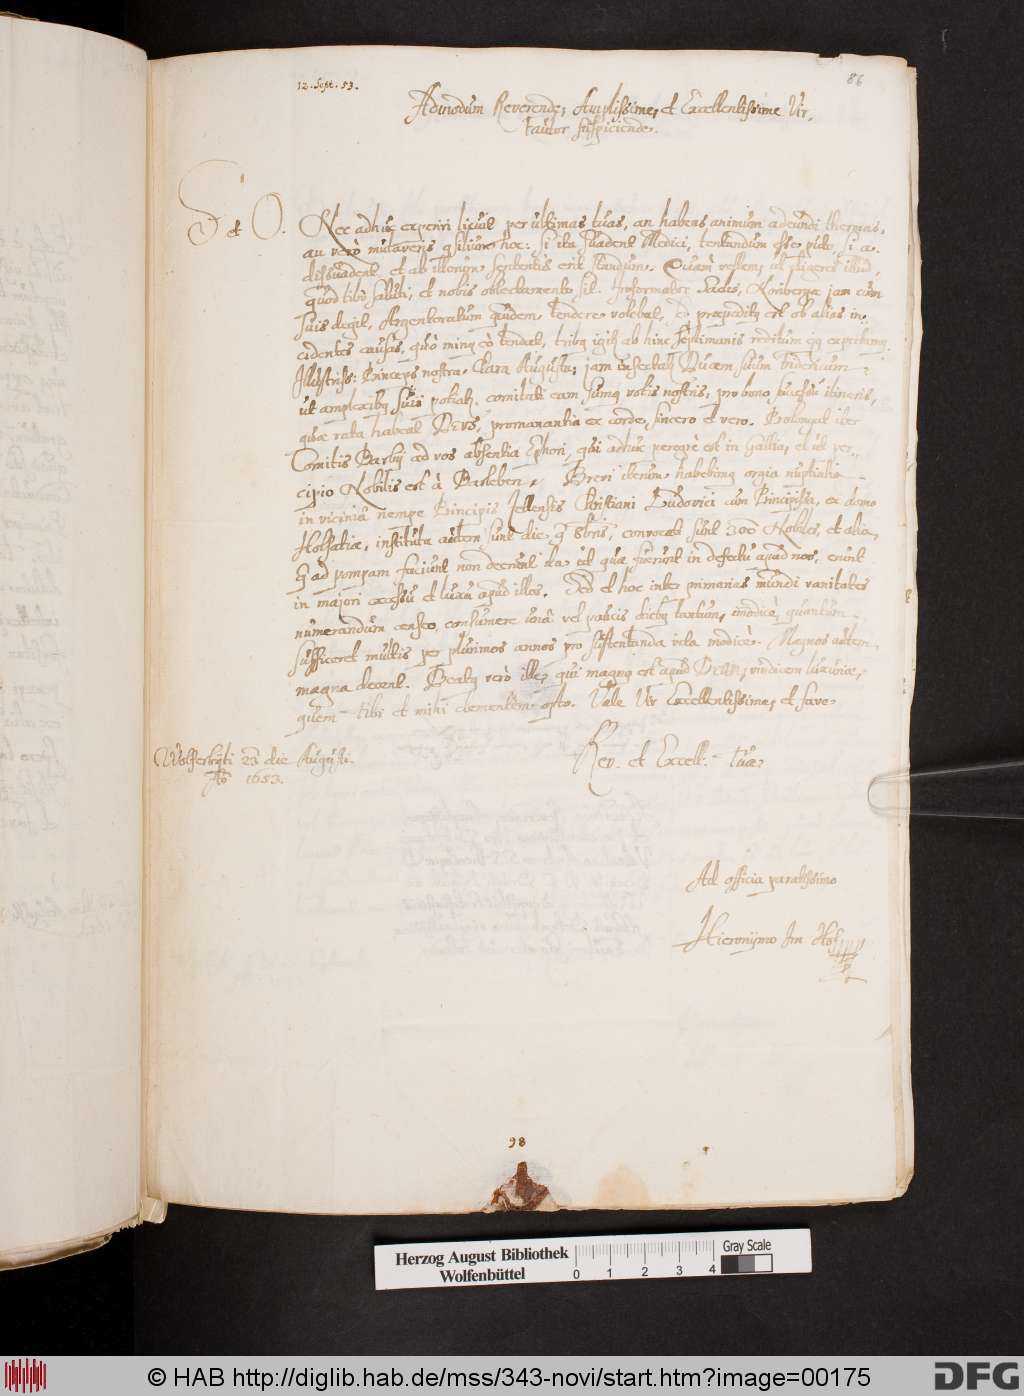 12. Sept. 53.
86
Admodum Reverende, Amplissime, et Excellentissime Vir,
fautor suspiciende.
S et O. Nec adhuc experiri licuit per ultimas tuas, an habeas animum adeundi thermas,
an verò mutaveris hoc: si ita suadent Medici, tentandum esse puto, si
dissuadent et ab illorum sententiis erit standum. vellem, ut
quod tibi saluti, et nobis oblectamento sit. Informator Noribergae jam cum
suis degit, Argentoratum quidem tendere volebat, sed praepeditq est ob alias in-
cidentes causas, quò minq eò tendat, tribq igitr ab hinc septimanis reditum ejq expectamq.
Illustriss: Princeps nostra, Clara Augusta, jam Ducem suum Fridericum
ut amplexibq suis potiatr. comitati eam sumq votis nostris, pro bono successu itineris,
quae rata habeat DEVS, promanantia ex corde sincero et vero. Prolongat iter
Comitis Barbij ad vos absentia Ephori, qui adhuc peregrè est in Gallia, et ut per-
cipio Nobilis est à Barleben. Breri iterum habebimq orgia nuptialia
in viciniâ nempe Principis Zellensis Christiani Ludovici cum Principissa, ex domo
Holsatiae, instituta autem sunt die, 9 8bris, convocati sunt 300 Nobiles, et alia,
q ad pompam faciunt non deerunt ita ut quae fuerunt in defectu apud nos, erunt
in majori excessu et luxu apud illos. Sed et hoc inter primarias mundi vanitates
numerandum censeo, consumere unâ vel paucis diebq tantum, immodicè, quantum
sufficeret multis per plurimos annos pro sustentanda vita modicè. Magnos autem
magna decent. Beatq verò ille, qui magnq est apud Deum, vindicem luxuriae,
quem tibi et mihi clementem opto. Vale Vir Excellentissime, et fave
Rev. et Excell. Tuae
Wolferbyti 23 die Augusti.
Ao 1653.
Ad officia paratissimo
Hieronymo Im Hof
98
Herzog August Bibliothek
Wolfenbüttel
0 1 2 3 4
Gray Scale
© HAB http://diglib.hab.de/mss/343-novi/start.htm?image=00175
DFG